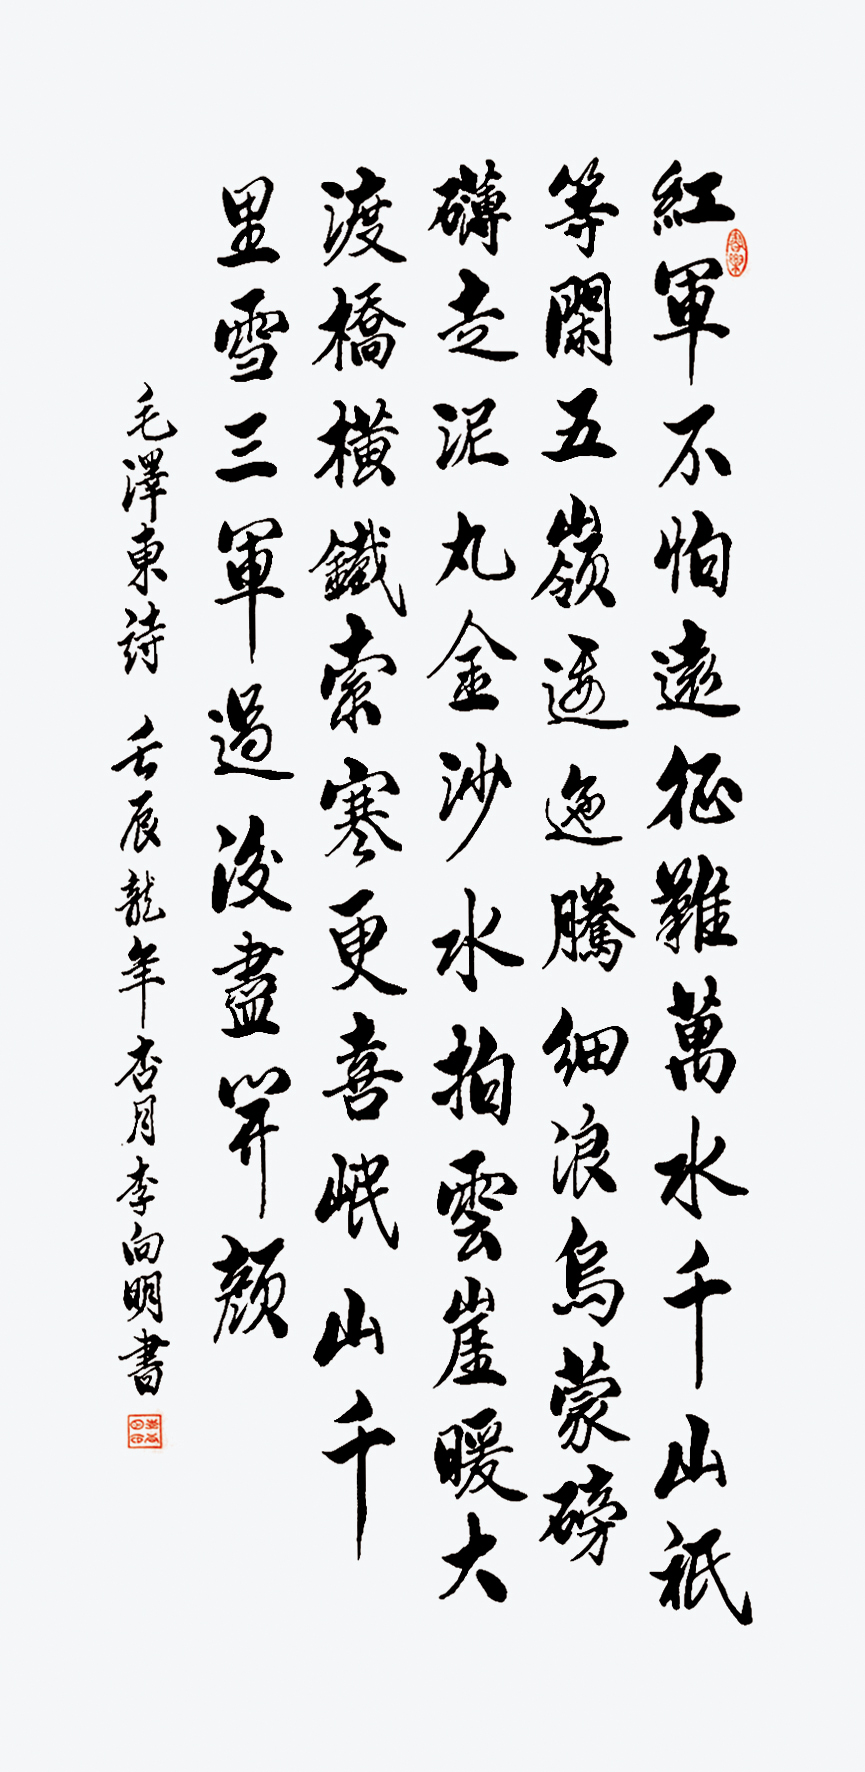 紅軍不怕遠征難萬水千山衹
等閑五嶺逶迤騰細浪烏蒙磅
礴走泥丸金沙水拍雲崖暖大
渡橋橫鐵索寒更喜岷山千
里雪三軍過後盡開顏
毛澤東詩 壬辰龍年杏月李向明書